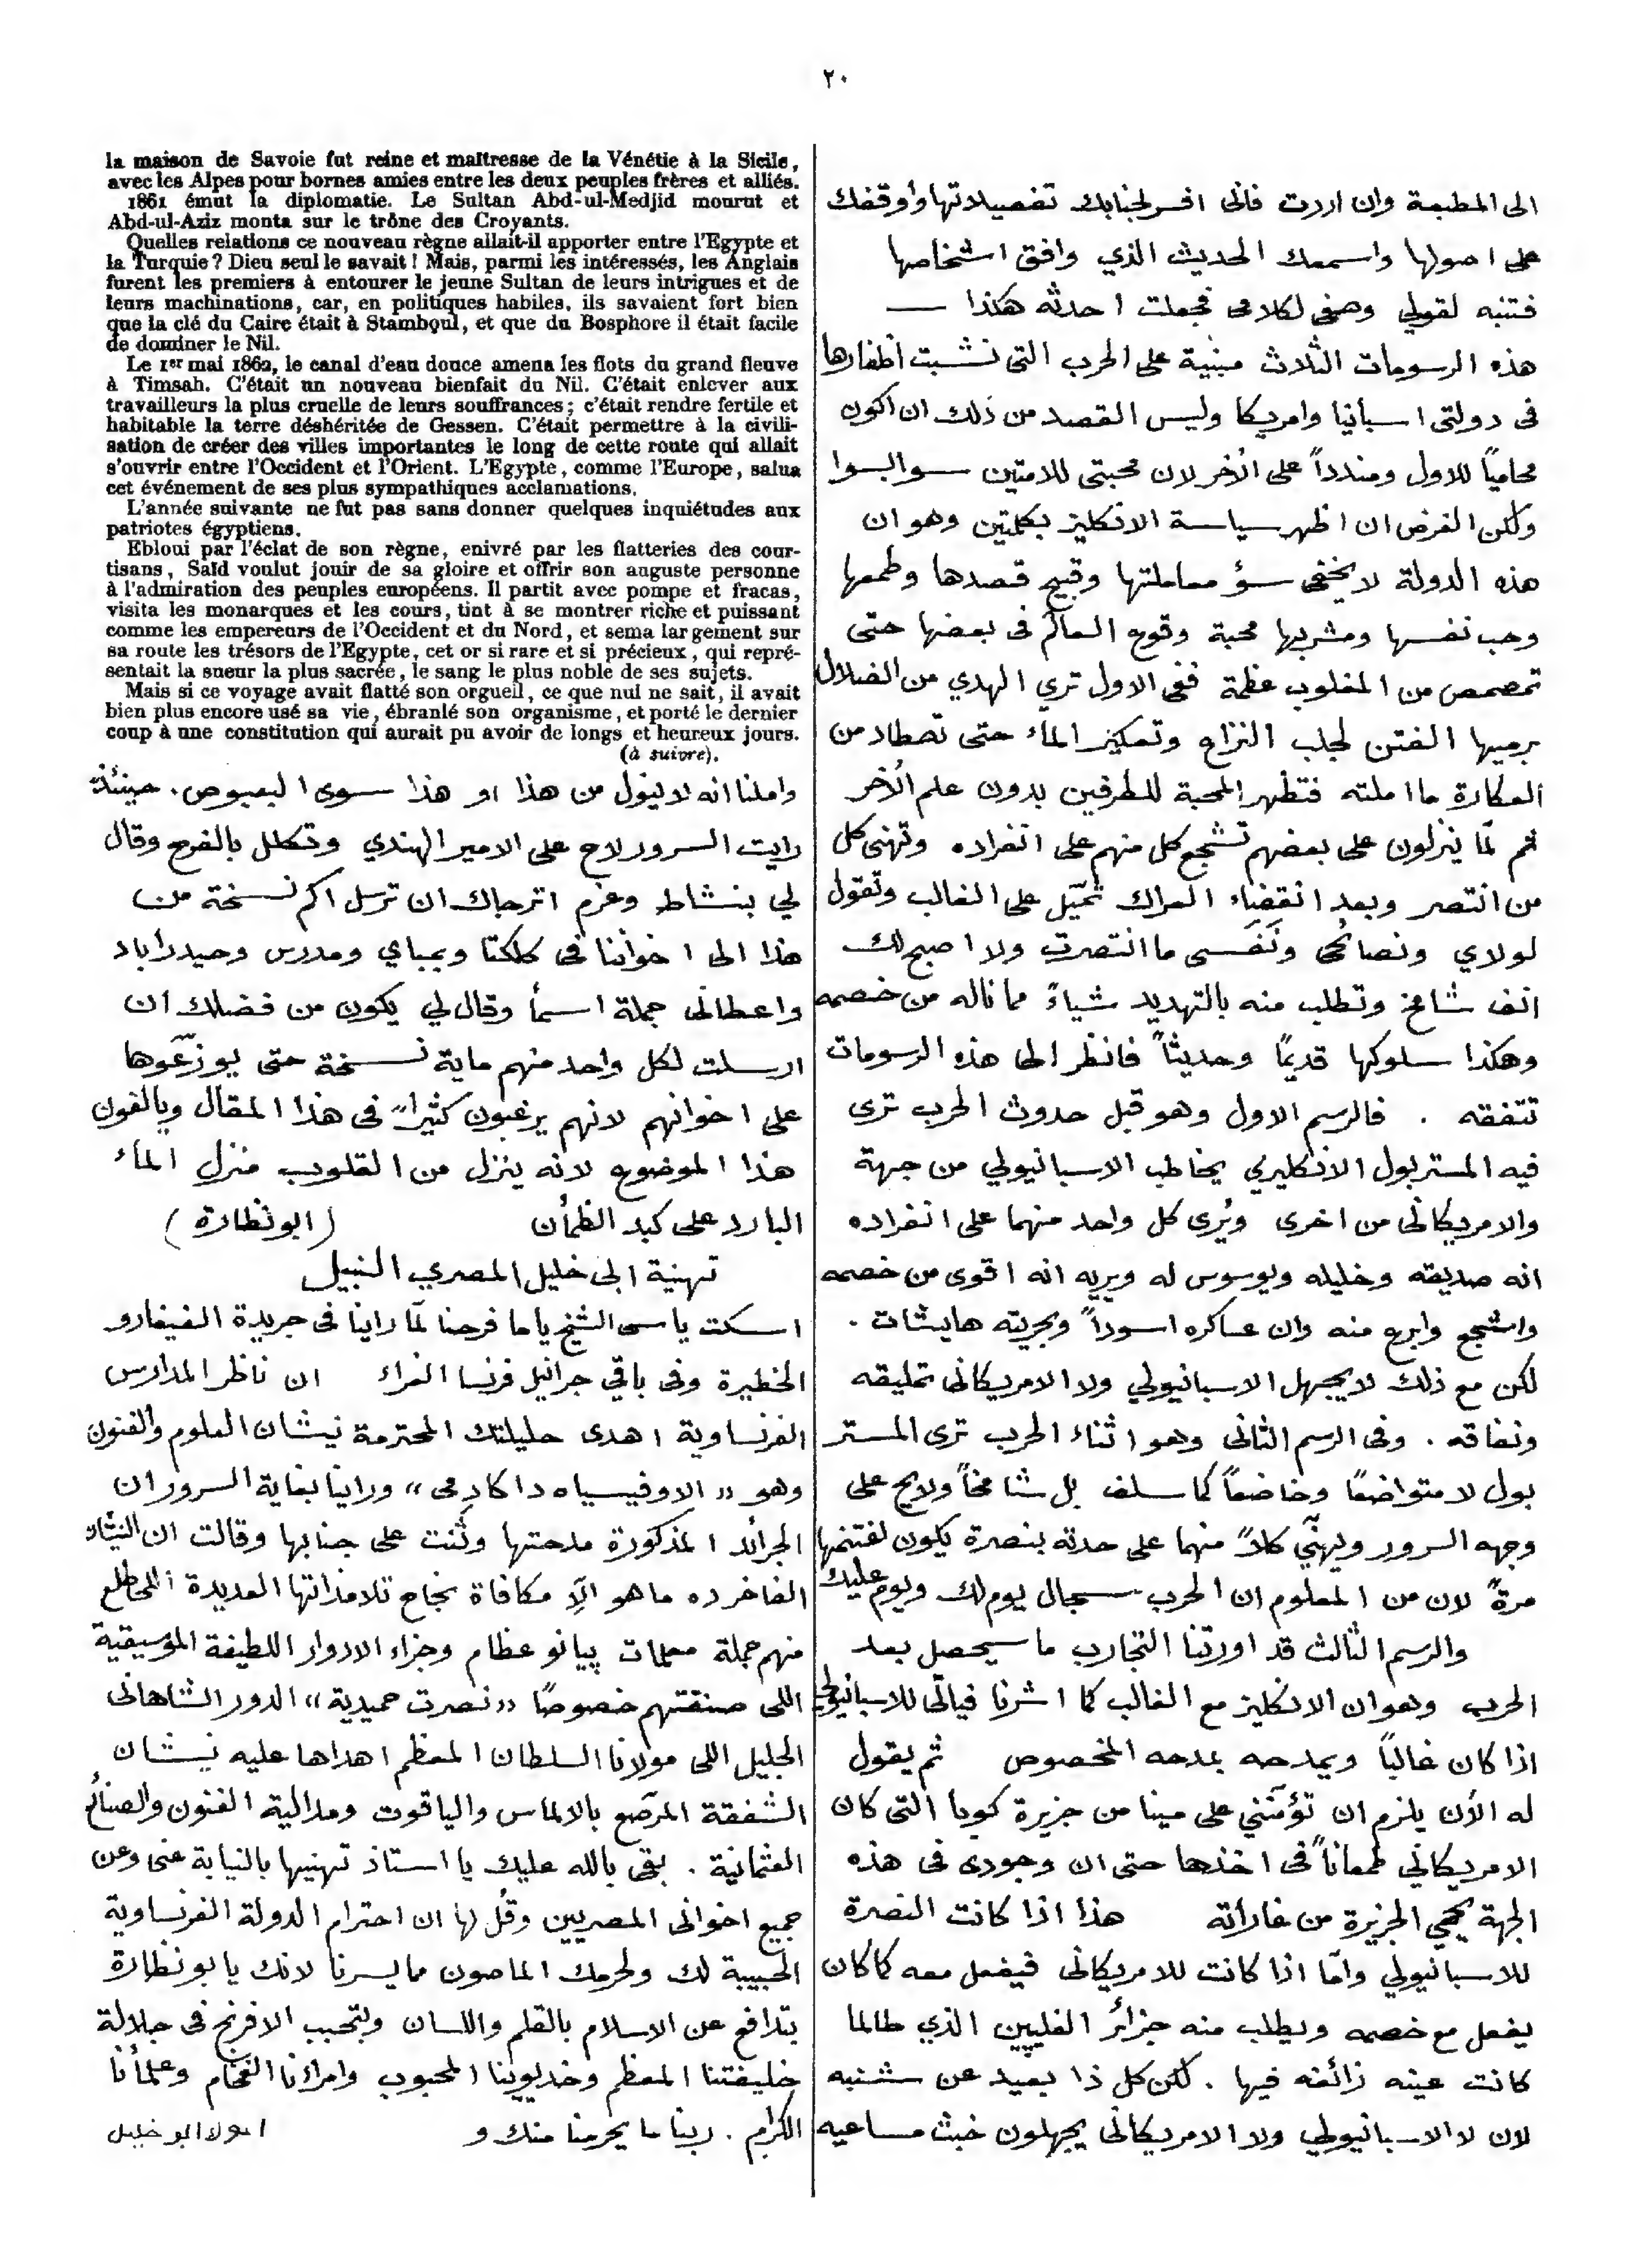 ٢٠
الى المطبعة وان اردت فانى افسر لجنابك تفصيلاتها وأوقفك
على اصولها واسمعك الحديث الذي وافق اشخاصها
فتنبه لقولي وصغى لكلامى فجعلت احدثه هكذا —
هذه الرسومات الثلاث مبنية على الحرب التى نشبت اظفارها
فى دولتى اسبانيا وامريكا وليس القصد من ذلك ان اكون
محامياً للاول ومندداً على الأخر لان محبتى للامتين سوا بسوا
ولكن الغرض ان اظهر سياسة الانكليز بكلمتين وهو ان
هذه الدولة لا يخفى سؤ معاملتها وقبيح قصدها وطمعها
وحب نفسها ومشربها محبة وقوع العالم فى بعضها حتى
تمصمص من المغلوب عظمة ففى الاول تري الهدي من الضلال
برميها الفتن لجلب النزاع وتعكيز الماء حتى تصطاد من
العكارة ما املته فتظهر المحبة للطرفين بدون علم الأخر
ثم لمّا ينزلون على بعضهم تشجع كل منهم على انفراده وتهنى كل
من انتصر وبعد انقضاء العراك تميّل على الغالب وتقول
لولاي ونصائحى ونفسى ما انتصرت ولا اصبح لك
انف شامخ وتطلب منه بالتهديد شياءً مما ناله من خصمه
وهكذا سلوكها قديمًا وحديثاً فانظر الى هذه الرسومات
تتفقه . فالرسم الاول وهو قبل حدوث الحرب ترى
فيه المستر بول الانكليزي يخاطب الاسبانيولي من جهة
والامريكانى من اخرى ويُرى كل واحد منهما على انفراده
انه صديقه وخليله ويوسوس له ويريه انه اقوى من خصمه
واشجع وابرع منه وان عساكره اسوداً وبحريته هايشات .
لكن مع ذلك لا يجهل الاسبانيولي ولا الامريكانى تمليقه
ونفاقه . وفى الرسم الثانى وهو اثناء الحرب ترى المستر
بول لا متواضعًا وخاضعاً كما سلف بل شامخاً ولايح على
وجهه السرور ويهنّي كلاً منهما على حدته بنصرة يكون اغتنمها
مرةً لان من المعلوم ان الحرب سجال يوم لك ويوم عليك
والرسم الثالث قد اورتنا التجارب ما سيحصل بعد
الحرب وهو ان الانكليز مع الغالب كما اشرنا فيأتى للاسبانيولي
اذا كان غالباً ويمدحه بمدحه المخصوص ثم يقول
له الأن يلزم ان تؤمّنني على مينا من جزيرة كوبا التى كان
الامريكاني طمعاناً فى اخذها حتى ان وجودى فى هذه
الجهة يحمي الجزيرة من غاراته هذا اذا كانت النصرة
للاسبانيولي وامّا اذا كانت للامريكانى فيفعل معه كما كان
يفعل مع خصمه ويطلب منه جزائر الفليپين الذي طالما
كانت عينه زائغه فيها . لكن كل ذا بعيد عن شنبه
لان لا الاسبانيولي ولا الامريكانى يجهلون خبث مساعيه
la maison de Savoie fut reine et maîtresse de la Vénétie à la Sicile,
avec les Alpes pour bornes amies entre les deux peuples frères et alliés.
1861 émut la diplomatie. Le Sultan Abd-ul-Medjid mourut et
Abd-ul-Aziz monta sur le trône des Croyants.
Quelles relations ce nouveau règne allait-il apporter entre l'Egypte et
la Turquie ? Dieu seul le savait ! Mais, parmi les intéressés, les Anglais
furent les premiers à entourer le jeune Sultan de leurs intrigues et de
leurs machinations, car, en politiques habiles, ils savaient fort bien
que la clé du Caire était à Stamboul, et que du Bosphore il était facile
de dominer le Nil.
Le 1er mai 1862, le canal d'eau douce amena les flots du grand fleuve
à Timsah. C'était un nouveau bienfait du Nil. C'était enlever aux
travailleurs la plus cruelle de leurs souffrances ; c'était rendre fertile et
habitable la terre déshéritée de Gessen. C'était permettre à la civili-
sation de créer des villes importantes le long de cette route qui allait
s'ouvrir entre l'Occident et l'Orient. L'Egypte, comme l'Europe, salua
cet événement de ses plus sympathiques acclamations.
L'année suivante ne fut pas sans donner quelques inquiétudes aux
patriotes égyptiens.
Ebloui par l'éclat de son règne, enivré par les flatteries des cour-
tisans, Saïd voulut jouir de sa gloire et offrir son auguste personne
à l'admiration des peuples européens. Il partit avec pompe et fracas,
visita les monarques et les cours, tint à se montrer riche et puissant
comme les empereurs de l'Occident et du Nord, et sema largement sur
sa route les trésors de l'Egypte, cet or si rare et si précieux, qui repré-
sentait la sueur la plus sacrée, le sang le plus noble de ses sujets.
Mais si ce voyage avait flatté son orgueil, ce que nul ne sait, il avait
bien plus encore usé sa vie, ébranlé son organisme, et porté le dernier
coup à une constitution qui aurait pu avoir de longs et heureux jours.
(à suivre).
واملنا انه لا ينول من هذا او هذا سوى البعبوص . حينئذ
رايت السرور لاح على الامير الهندي وتكلل بالفرح وقال
لي بنشاط وعزم اترجاك ان ترسل اكم نسخة من
هذا الى اخواننا فى كلكتا وبمباي ومدرس وحيدراباد
واعطانى جملة اسمأ وقال لي يكون من فضلك ان
ارسلت لكل واحد منهم ماية نسخة حتى يوزّعوها
على اخوانهم لانهم يرغبون كثيراً فى هذا المقال ويالفون
هذا الموضوع لانه ينزل من القلوب منزل الماء
البارد على كبد الظمأن (ابو نظارة)
تهنية ابى خليل المصري النبيل
اسكت ياسى الشيخ ياما فرحنا لمّا راينا فى جريدة الفيغارو
الخطيرة وفى باقي جرانيل فرنسا الغراء ان ناظر المدارس
الفرنساوية اهدى حليلتك المحترمة نيشان العلوم والفنون
وهو «الاوفيسياه داكادمى» وراينا بغاية السرور ان
الجرائد المذكورة مدحتها وثنت على جنابها وقالت ان النيشان
الفاخر ده ما هو الّا مكافاة نجاح تلامذاتها العديدة اللى طلع
منهم جملة معلمات پيانو عظام وجزاء الادوار اللطيفة الموسيقية
اللى صنفتهم خصوصًا «نصرت حميدية» الدور الشاهانى
الجليل اللى مولانا السلطان المعظم اهداها عليه نيشان
الشفقة المرصّع بالالماس والياقوت ومدالية الفنون والصنائع
العثمانية . بقى بالله عليك يا استاذ تهنيها بالنيابة عنى وعن
جميع اخوانى المصريين وقُل لها ان احترام الدولة الفرنساوية
الحبيبة لك ولحرمك الماصون مما يسرنا لانك يا بو نظارة
بتدافع عن الاسلام بالقلم واللسان وبتحبب الافرنج فى جلالة
خليفتنا المعظم وخديوينا المحبوب وامرائنا الفخام وعلمائنا
الكرام . ربنا ما يحرمنا منك و ابو خليل